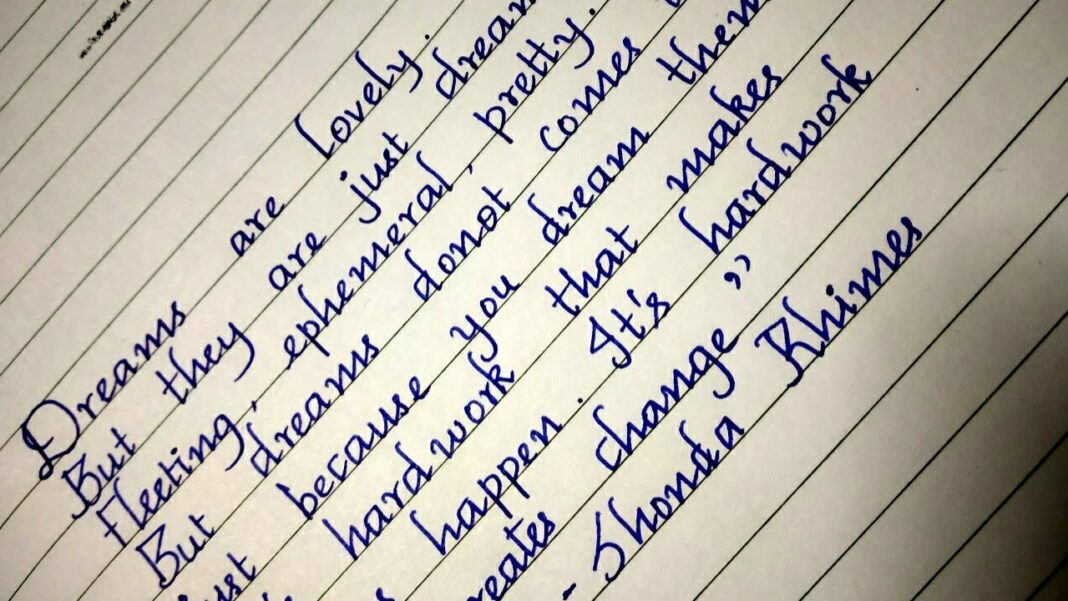 Dreams are lovely.
But they are just dream
Fleeting, ephemeral, pretty.
But dreams donot comes
ust because you dream them
hardwork that makes
happen. It's hardwork
reates change ”
- Shonda Rhimes